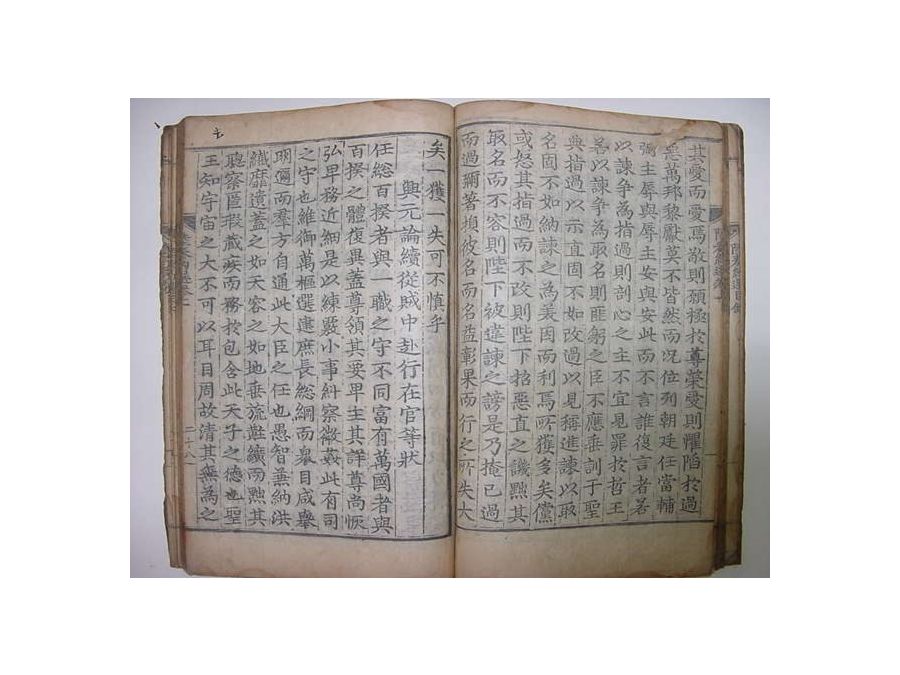 其愛而愛焉敬則願極於尊榮愛則懼陷於過
惡萬邦黎獻莫不皆然而況位列朝廷任當輔
弼主辱與辱主安與安此而不言誰復言者若
以諫爭為指過則剖心之主不宜見罪於哲王
若以諫爭為取名則匪躬之臣不應垂訓于聖
典指過以示直固不如改過以見稱進諫以取
名固不如納諫之為美因而利焉所獲多矣儻
或怒其指過而不改則陛下招惡直之譏黜其
取名而不容則陛下被違諫之謗是乃掩已過
而過彌著損彼名而名益彰果而行之所失大
矣一獲一失可不慎乎
興元論續從賊中赴行在官等狀
任總百揆者與一職之守不同富有萬國者與
百揆之體復異蓋尊領其要卑主其詳尊尚恢
弘卑務近細是以練覈小事糾察微姦此有司
之守也維御萬樞選建庶長總綱而衆目咸舉
明邇而羣方自通此大臣之任也愚智兼納洪
纖靡遺蓋之如天容之如地垂旒黈纊而黜其
聰察匿瑕藏疾而務於包含此天子之德也聖
王知宇宙之大不可以耳目周故清其無為之